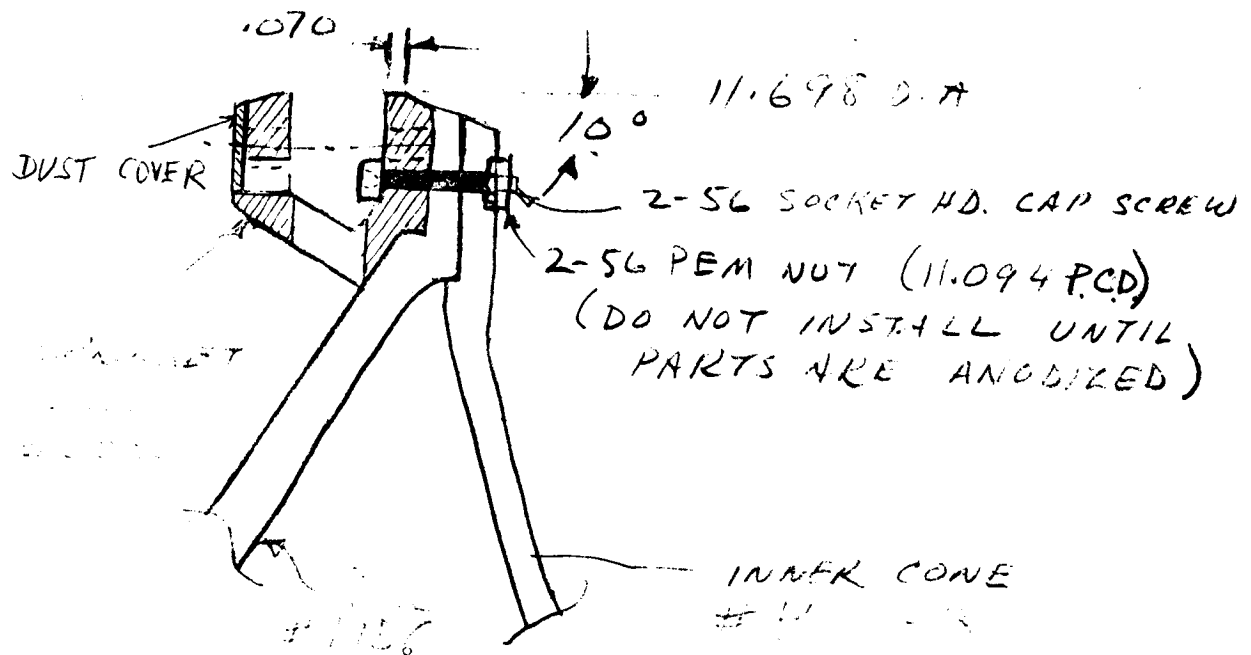 .070
11.698 DIA
10°
DUST COVER
2-56 SOCKET HD. CAP SCREW
2-56 PEM NUT (11.094 P.C.D.)
(DO NOT INSTALL UNTIL
PARTS ARE ANODIZED)
INNER CONE